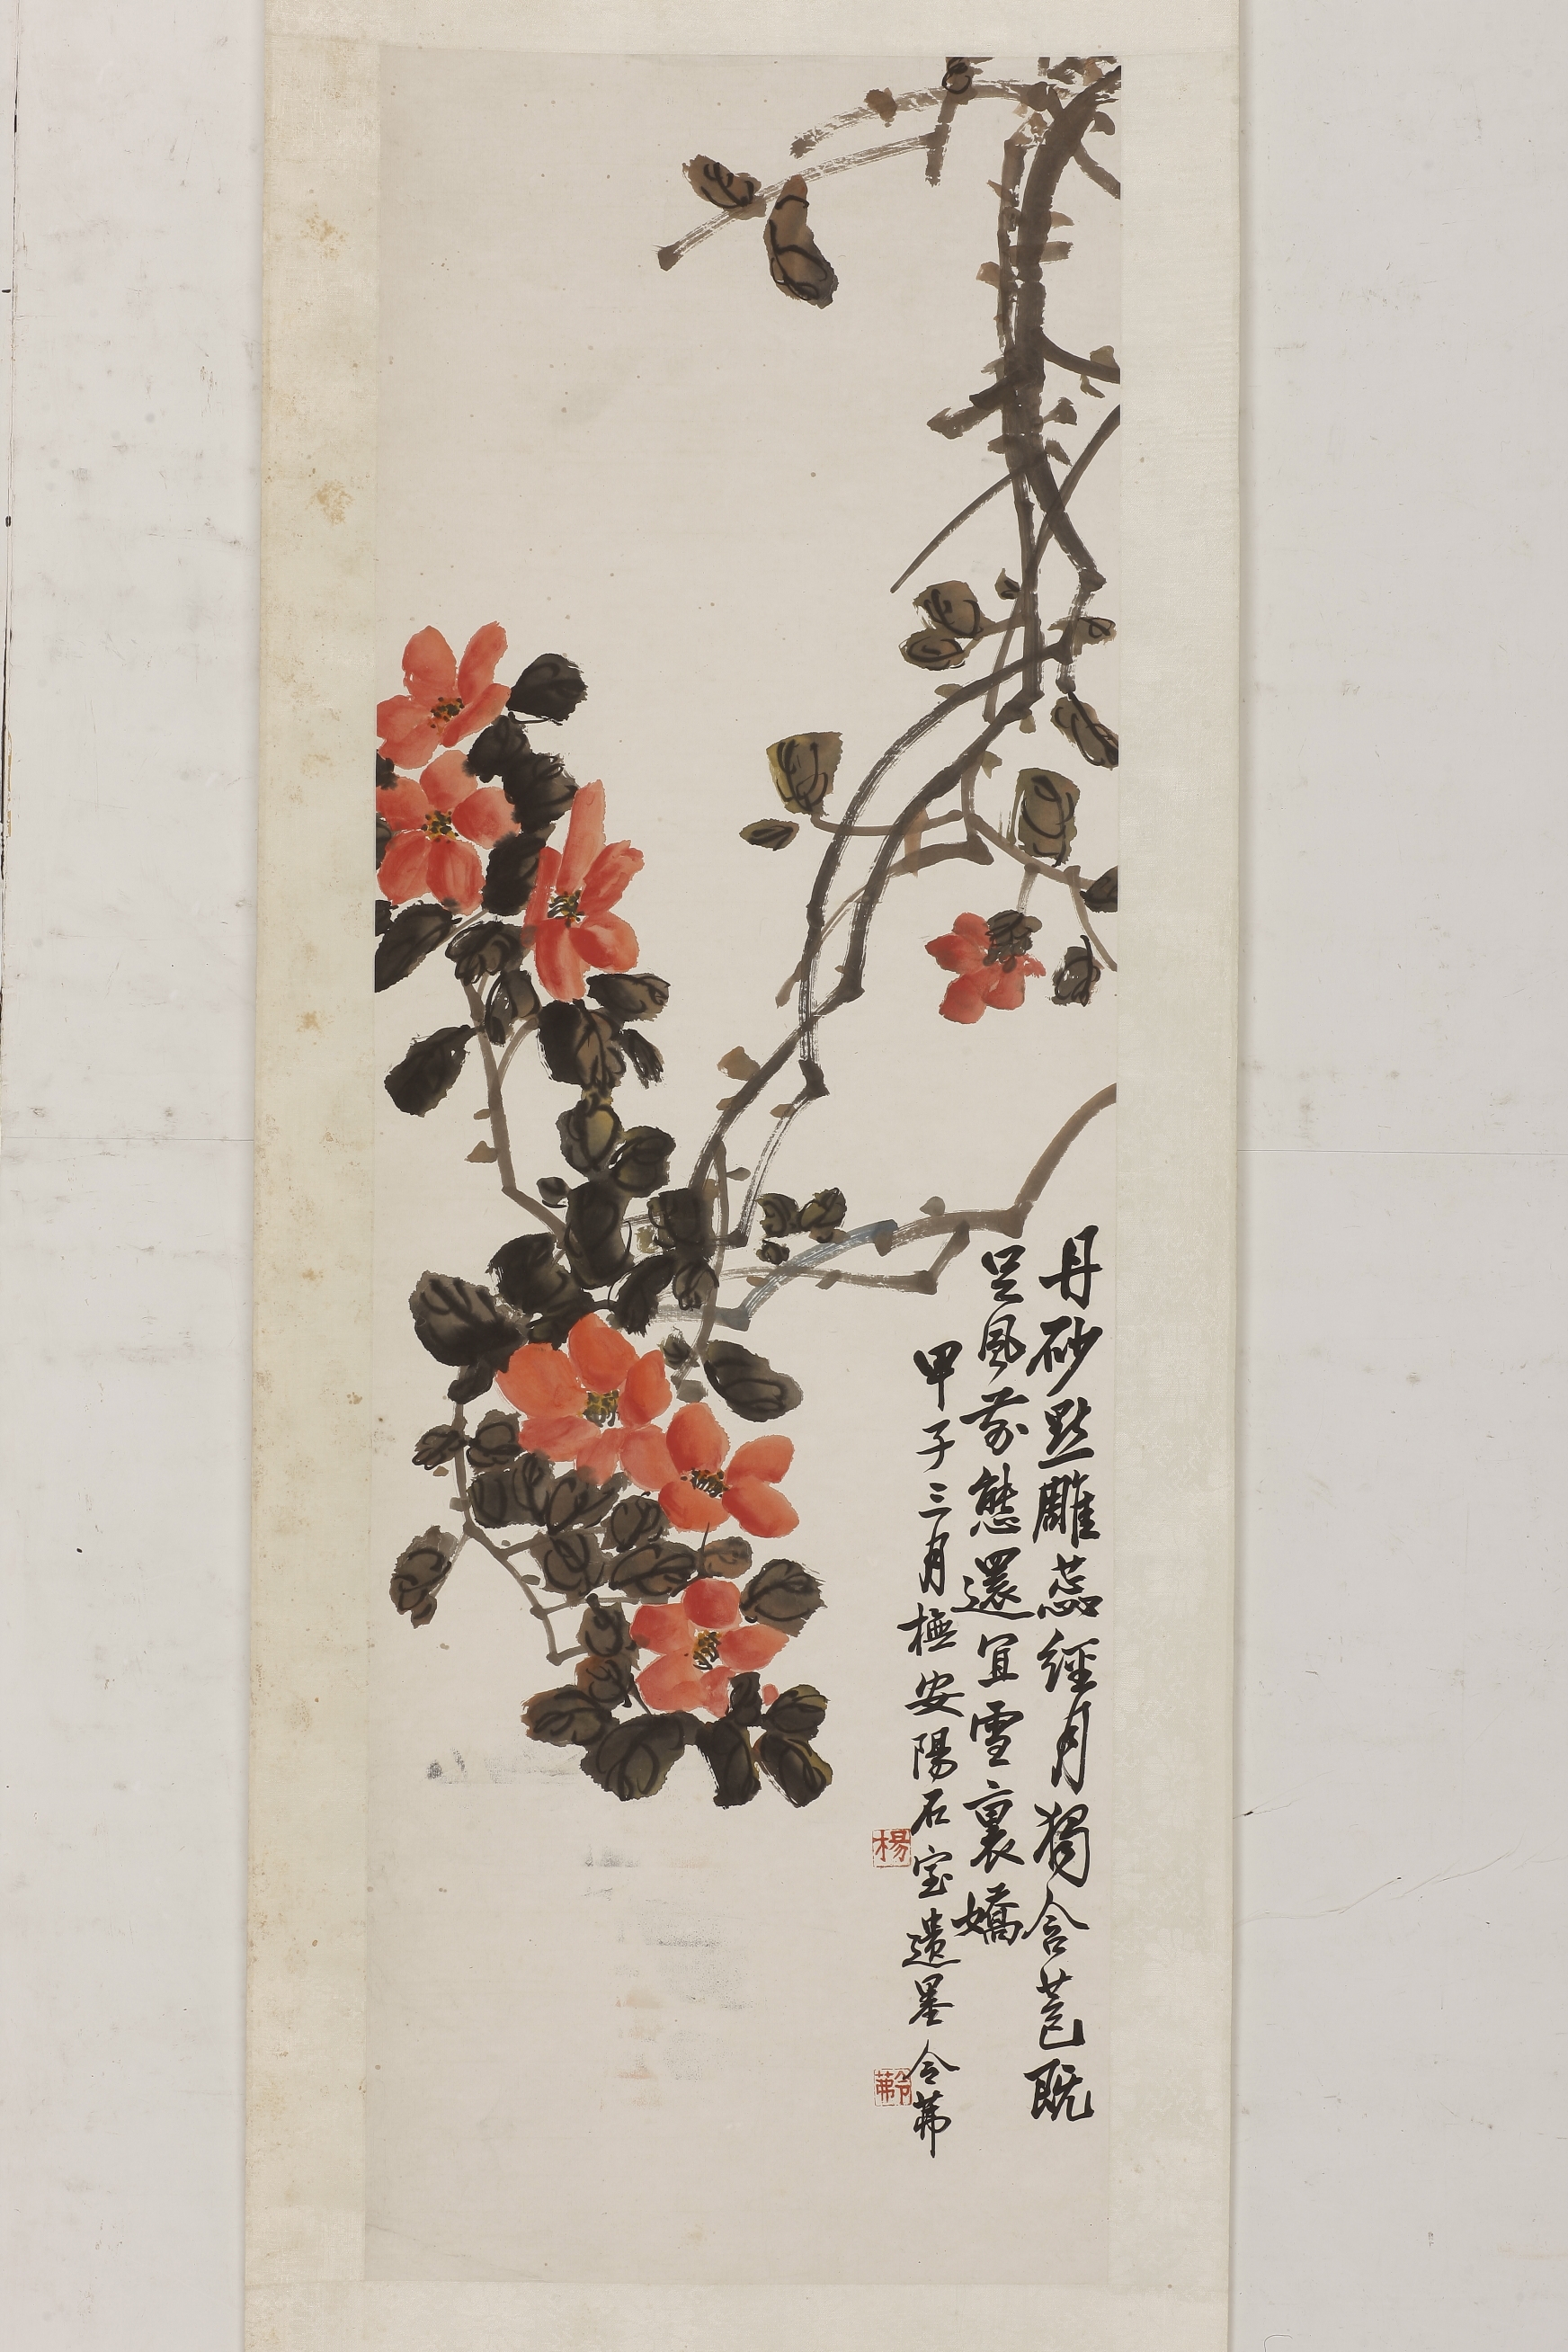 丹砂點雕蕊經月獨含苞既
足風前態還宜雪裏嬌
甲子三月橅安陽石室遺墨令茀
楊
令茀